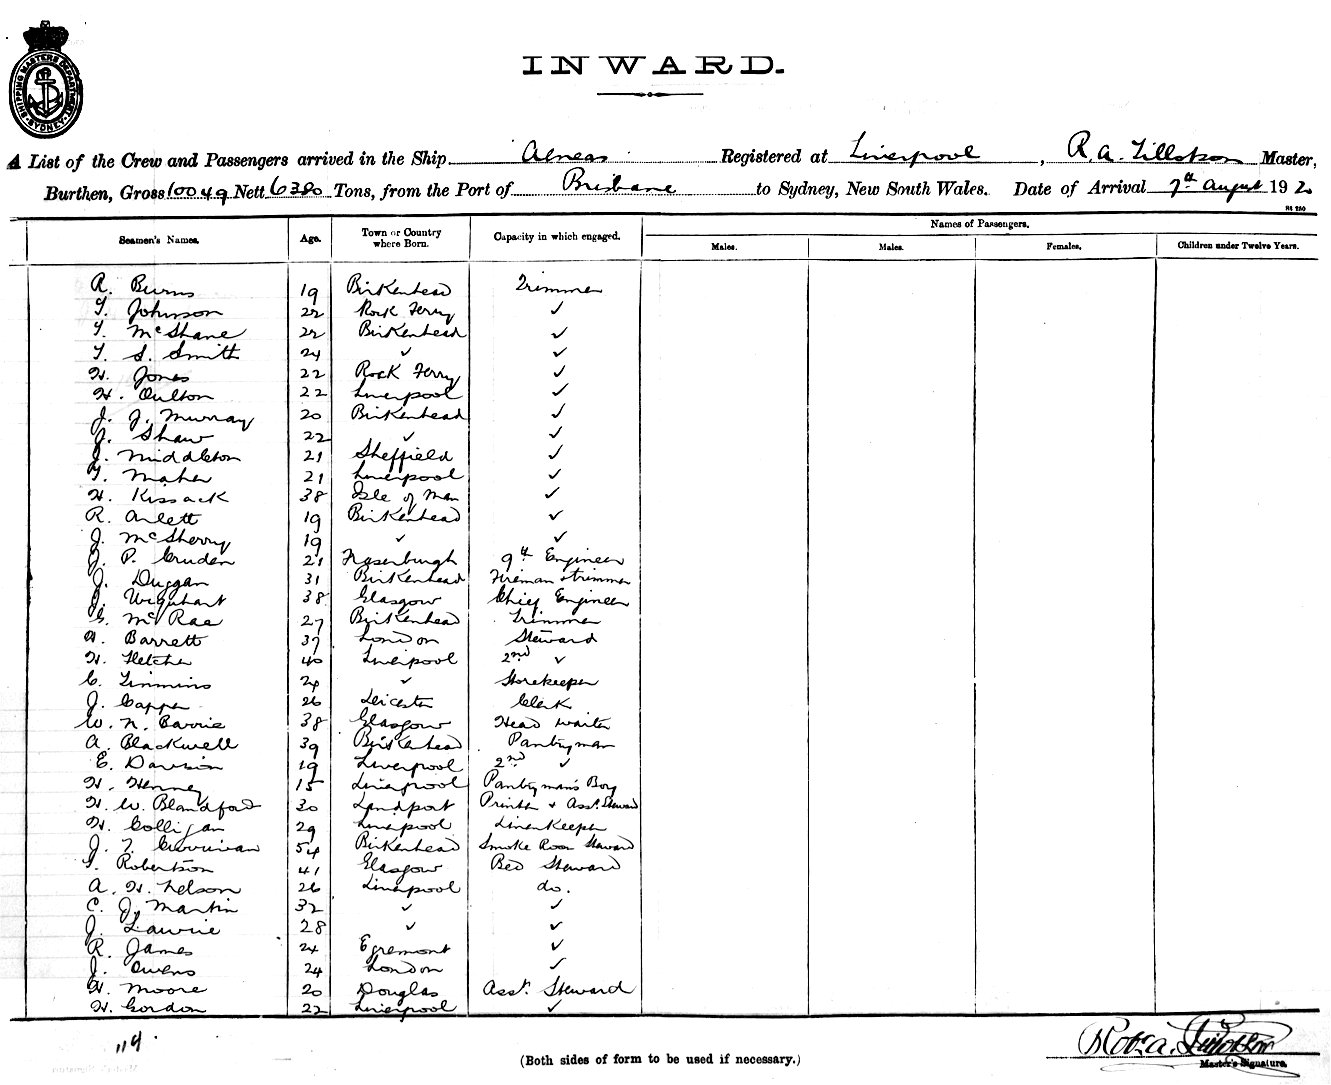 SHIPPING MASTERS DEPARTMENT SYDNEY
INWARD.
A List of the Crew and Passengers arrived in the Ship Aeneas Registered at Liverpool, R. A. Tillotson Master,
Burthen, Gross 10049 Nett Tons, from the Port of Brisbane to Sydney, New South Wales. Date of Arrival 7th August 192
Names of Passengers.
Seamen's Names. Age. Town or Country where Born. Capacity in which engaged. Males. Males. Females. Children under Twelve Years.
R. Burns 19 Birkenhead Trimmer
T. Johnson 22 Rock Ferry ✓
T. McShane 22 Birkenhead ✓
T. S. Smith 24 ✓ ✓
H. Jones 22 Rock Ferry ✓
H. Oulton 22 Liverpool ✓
J. J. Murray 20 Birkenhead ✓
J. Shaw 22 ✓ ✓
J. Middleton 21 Sheffield ✓
T. Maher 21 Liverpool ✓
H. Kissack 38 Isle of Man ✓
R. Arlett 19 Birkenhead ✓
J. McSherry 19 ✓ ✓
J. P. Cruden 21 Fraserburgh 9th Engineer
J. Duggan 31 Birkenhead Fireman & trimmer
J. Urquhart 38 Glasgow Chief Engineer
G. McRae 27 Birkenhead Trimmer
H. Barrett 37 London Steward
H. Fletcher 40 Liverpool 2nd ✓
C. Timmins 24 ✓ Storekeeper
J. Capper 26 Leicester Clerk
W. N. Barrie 38 Glasgow Head Waiter
A. Blackwell 39 Birkenhead Pantryman
E. Davison 19 Liverpool 2nd ✓
H. Henney 15 Liverpool Pantryman's Boy
H. W. Blandford 30 Landport Printer & Asst. Steward
H. Colligan 29 Liverpool Linenkeeper
J. T. 54 Birkenhead Smoke Room Steward
T. Robertson 41 Glasgow Bed Steward
A. H. Nelson 26 Liverpool do.
C. J. Martin 32 ✓ ✓
J. Lawrie 28 ✓ ✓
R. James 24 Egremont ✓
J. Owens 24 London ✓
H. Moore 20 Douglas Asst. Steward
H. Gordon 22 Liverpool ✓
Robt. A. Tillotson
Master's Signature.
(Both sides of form to be used if necessary.)